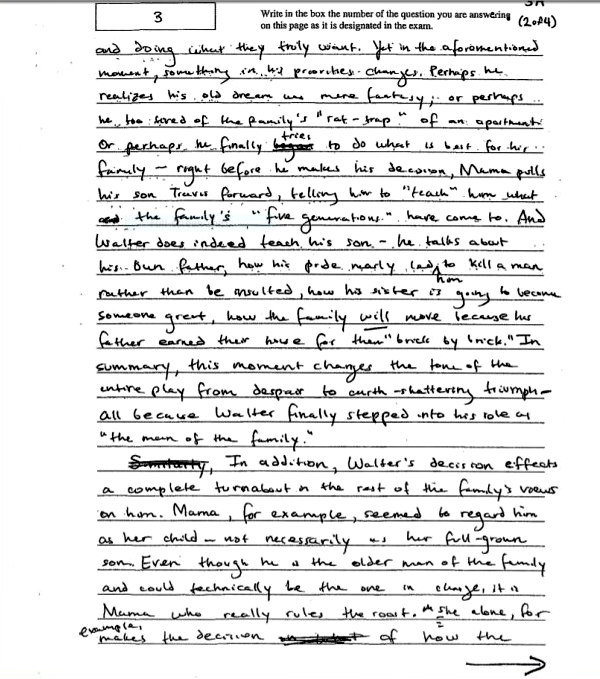 3A
3
Write in the box the number of the question you are answering
on this page as it is designated in the exam.
(2 of 4)
and doing what they truly want. Yet in the aforementioned
moment, something in his priorities changes. Perhaps he
realizes his old dream was mere fantasy; or perhaps
he too tired of the family's "rat-trap" of an apartment.
Or perhaps he finally tries to do what is best for his
family – right before he makes his decision, Mama pulls
his son Travis forward, telling him to "teach" him what
the family's "five generations" have come to. And
Walter does indeed teach his son – he talks about
his own father, how his pride nearly led him to kill a man
rather than be insulted, how his sister is going to become
someone great, how the family will move because his
father earned their house for them "brick by brick." In
summary, this moment changes the tone of the
entire play from despair to earth-shattering triumph –
all because Walter finally stepped into his role as
"the man of the family."
Similarly, In addition, Walter's decision effects
a complete turnabout in the rest of the family's views
on him. Mama, for example, seemed to regard him
as her child – not necessarily as her full-grown
son. Even though he is the older man of the family
and could technically be the one in charge, it is
Mama who really rules the roost. She alone, for
example, makes the decision of how the